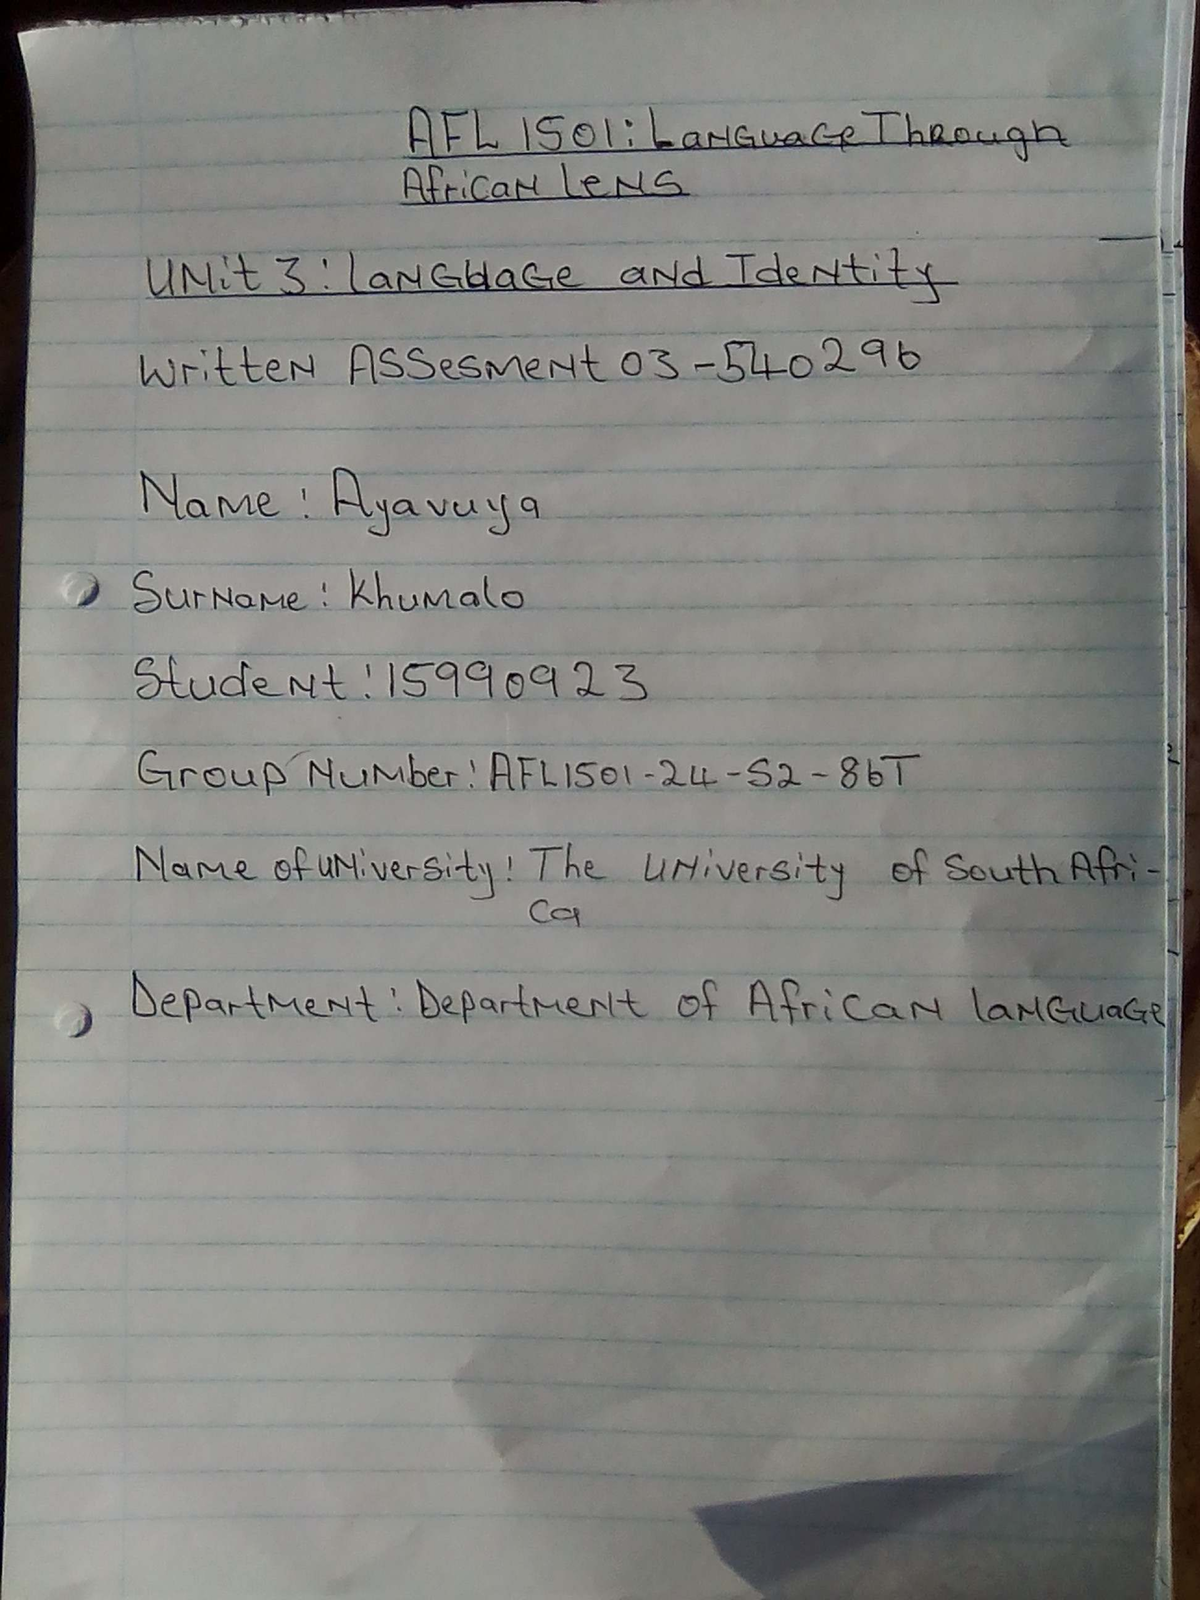 AFL 1501: Language Through
African lens
Unit 3: language and Identity
Written Assesment 03-540296
Name: Ayavuya
Surname: Khumalo
Student: 15990923
Group Number: AFL1501-24-S2-86T
Name of university: The university of South Afri-
ca
Department: Department of African language